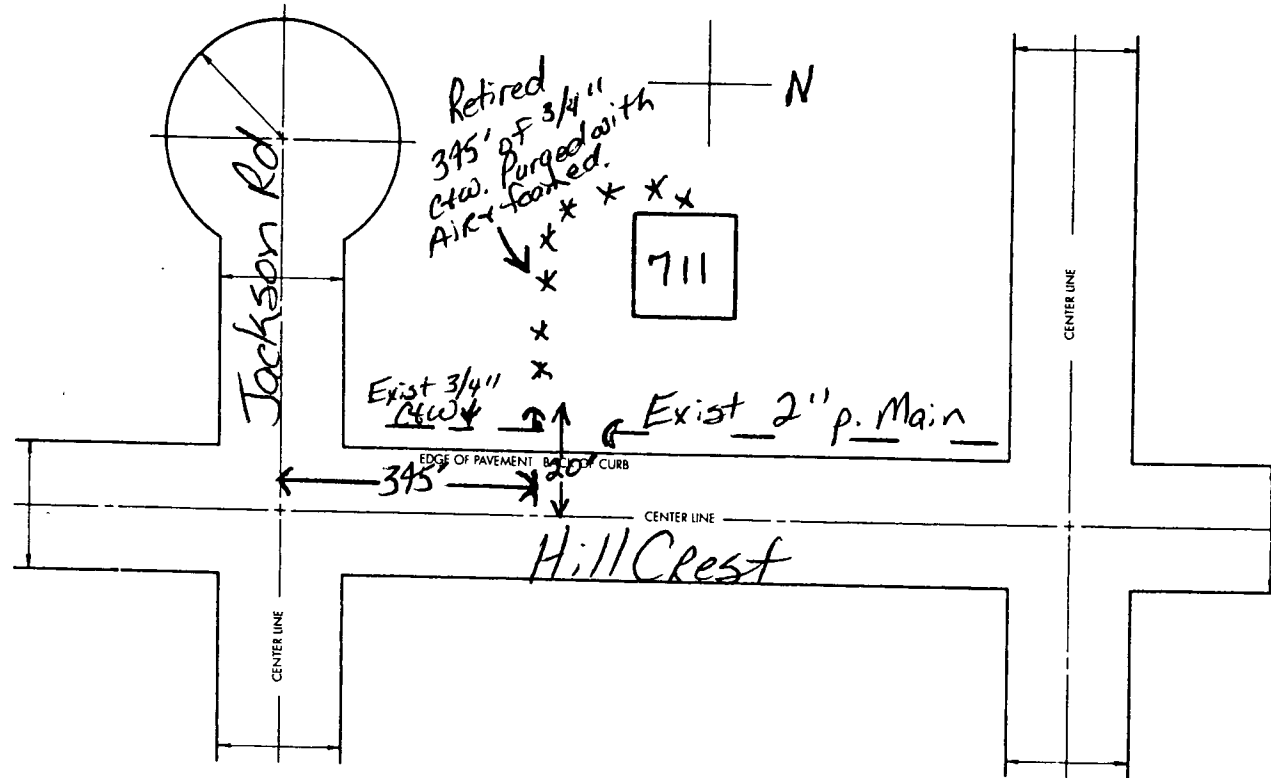 Jackson Rd
Retired
345' of 3/4"
C+W. Purged with
AIR + foamed.
N
711
CENTER LINE
Exist 3/4"
C+W
Exist 2" p. Main
EDGE OF PAVEMENT BACK OF CURB
345'
20'
CENTER LINE
Hill CRest
CENTER LINE